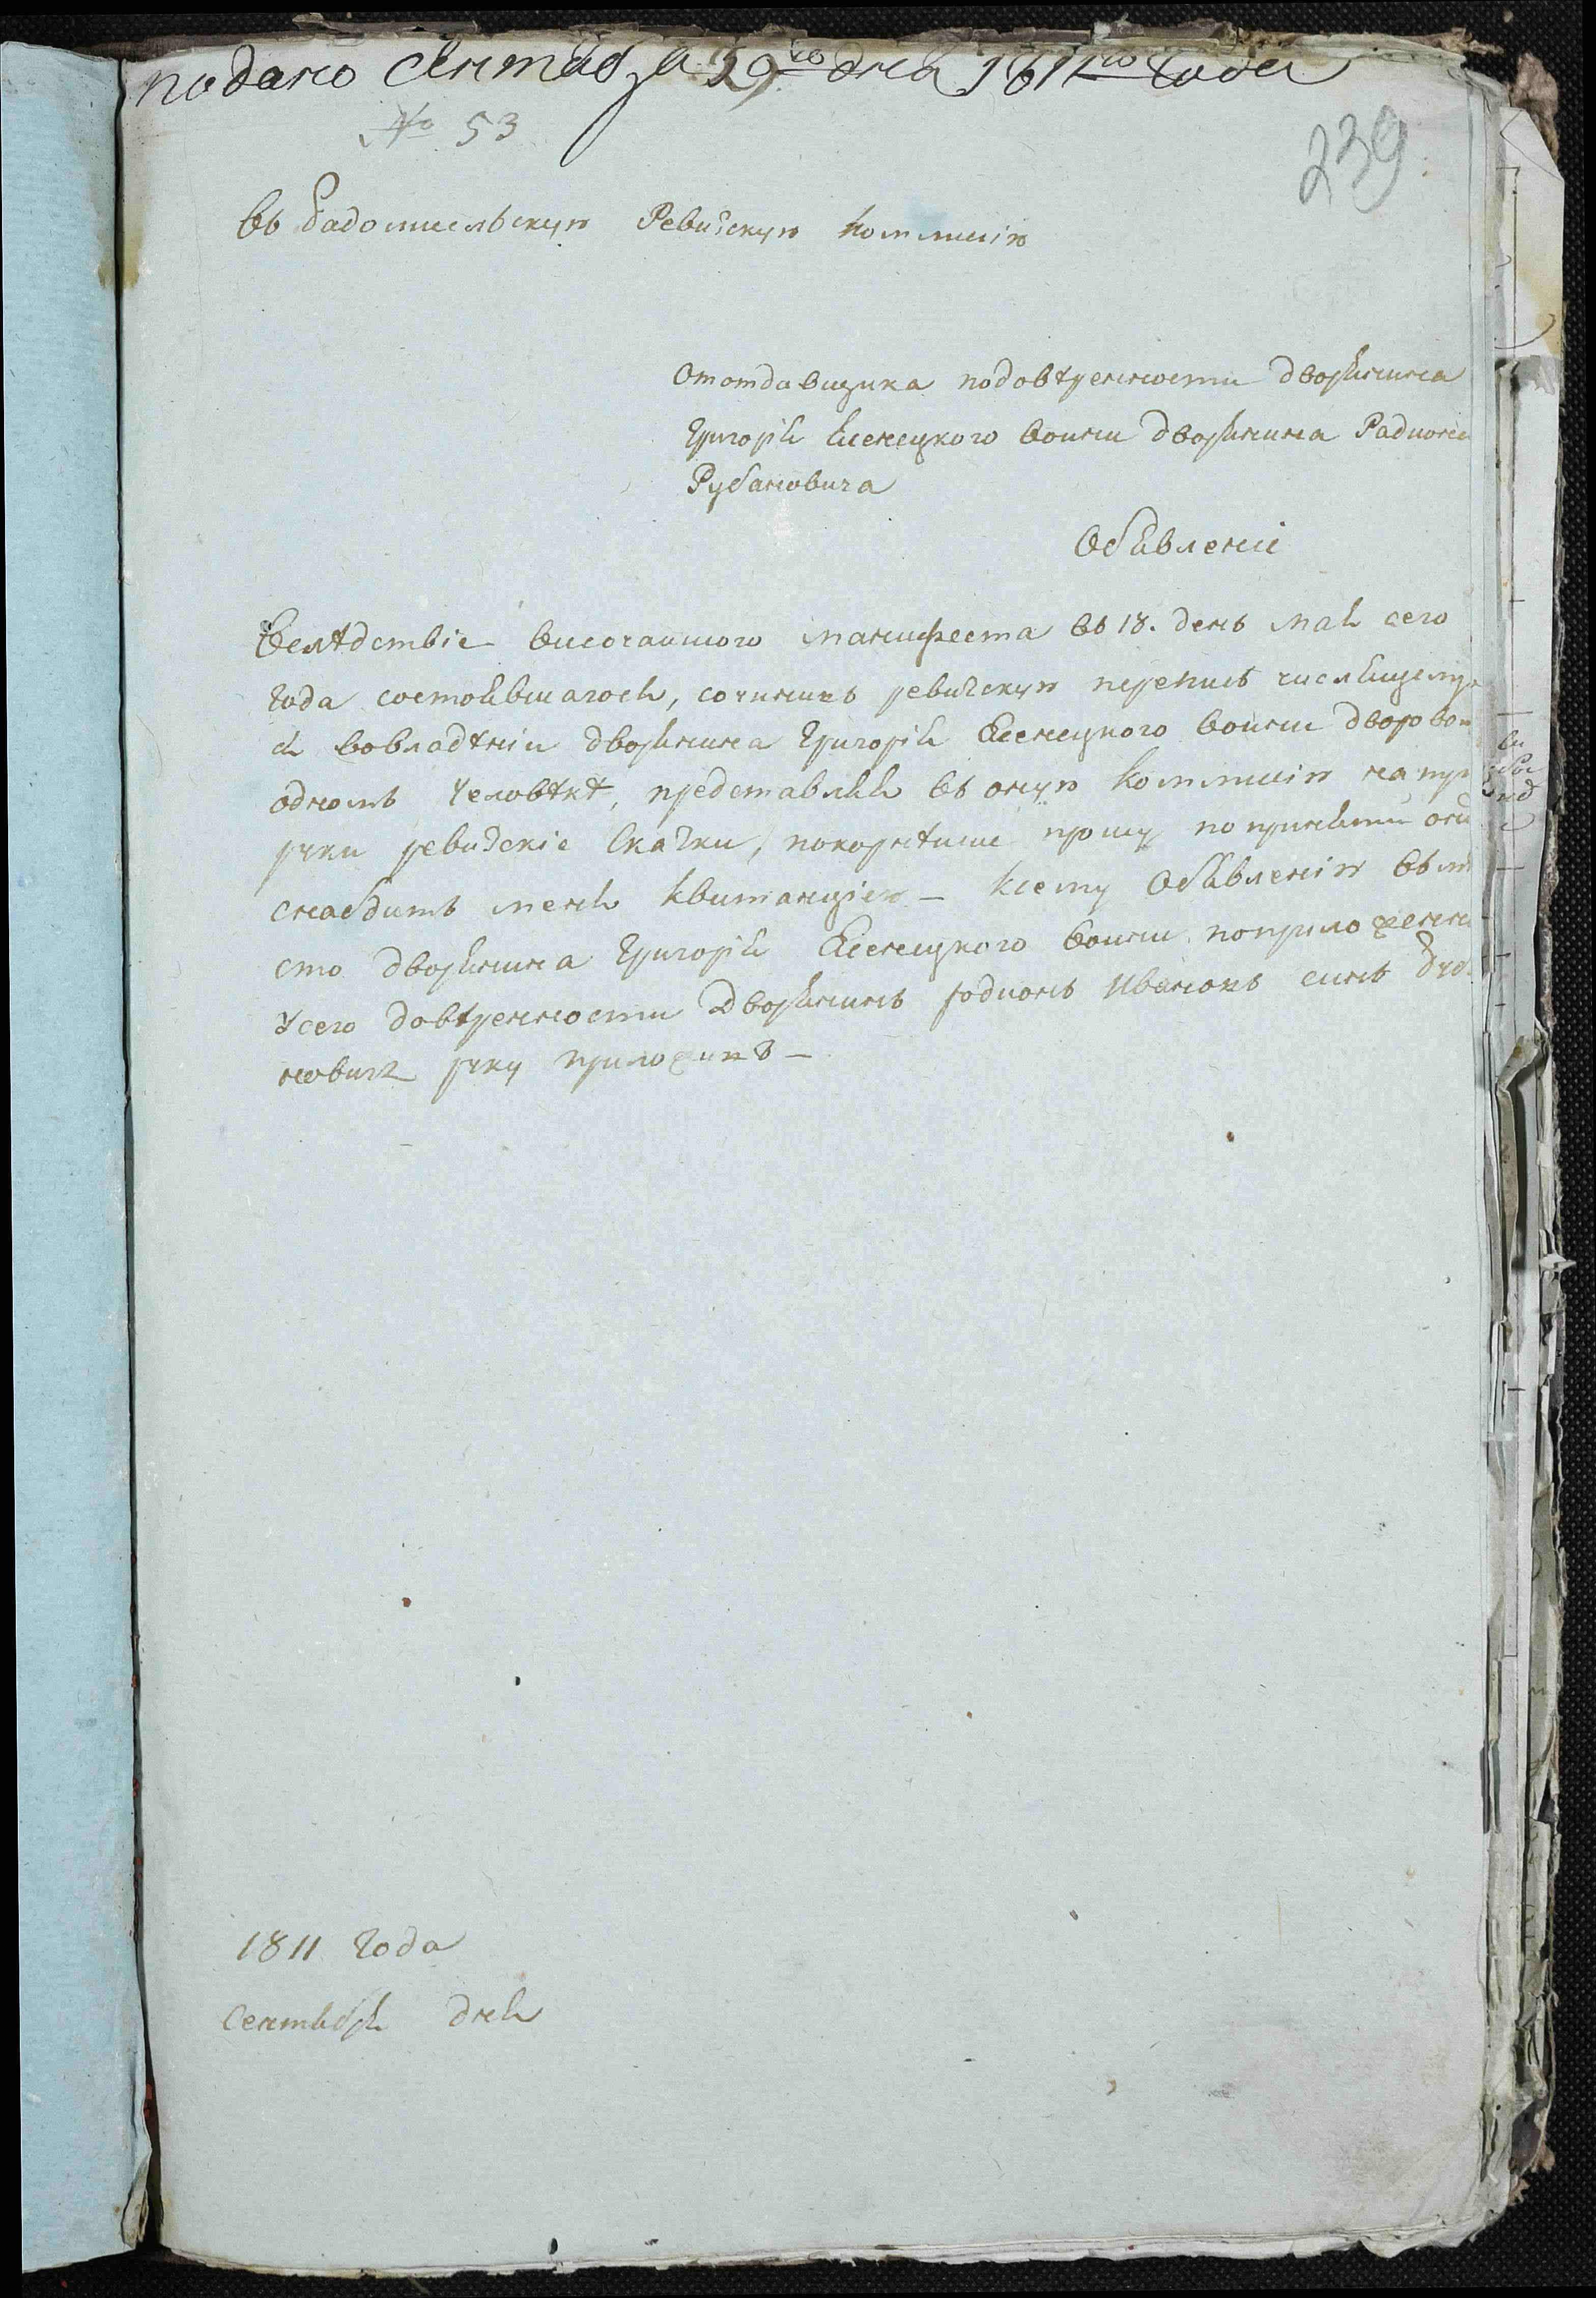 подано сентяб 29го дня 1811го года
№ 53
239
въ Радомисльскую Ревизскую Коммисію
Ототдавщика подовѣренности дворянина
Григорія Ксенецкого воини дворянина Радиона
Рубановича
Обявленіе
Вслѣдствіе височаишого манифеста въ 18. день мая сего
года состоявшагося, сочинивъ ревизскую перепись числящемус
я вовладѣніи дворянина Григорія Ксенецкого воини дворовом
одномъ человѣкѣ, представляя въ оную Коммисію на при
руки ревизскіе Скаски, покорнѣише прошу попринятіи они
снабдить меня квитанціею – ксему Обявленію вьм
сто дворянина Григорія Ксенецкого воини поприложенно
усего довѣренности дворянинъ родионъ Ивановъ синъ Руб
новичъ руку приложилъ –
1811 года
Сентября дня